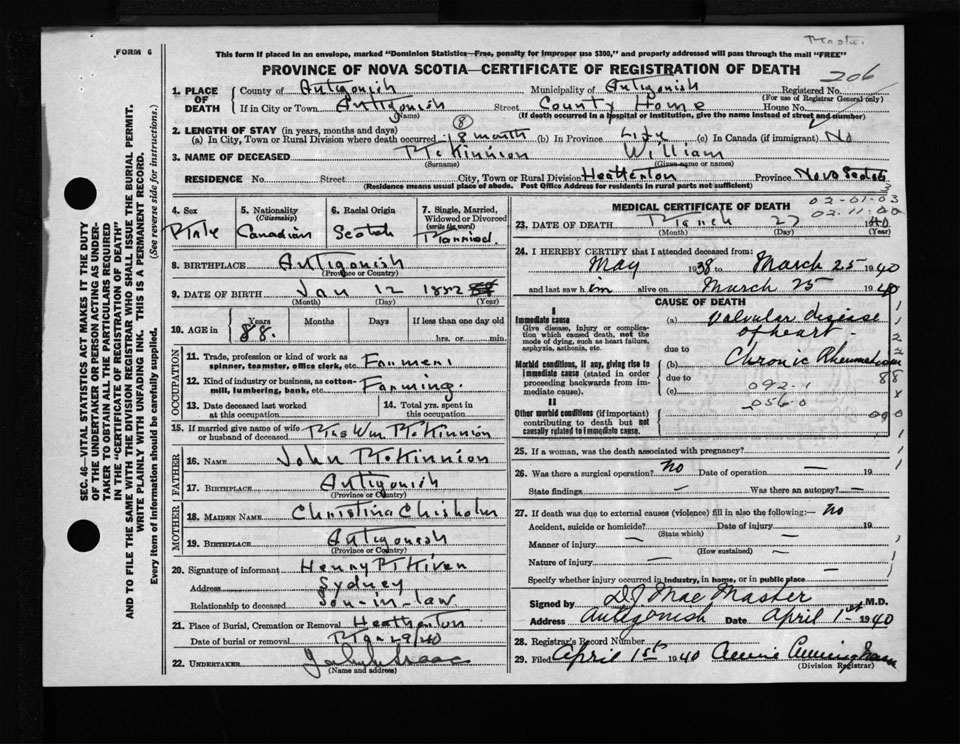 FORM 6
This form if placed in an envelope, marked "Dominion Statistics—Free, penalty for improper use $300," and properly addressed will pass through the mail "FREE"
PROVINCE OF NOVA SCOTIA—CERTIFICATE OF REGISTRATION OF DEATH
206
1. PLACE OF DEATH County of Antigonish Municipality of Antigonish Registered No.
(For use of Registrar General only)
If in City or Town Antigonish Street County Home House No.
(Name) (If death occurred in a hospital or institution, give the name instead of street and number)
2. LENGTH OF STAY (in years, months and days)
(a) In City, Town or Rural Division where death occurred 18 month (b) In Province Life (c) In Canada (if immigrant) No
(8)
3. NAME OF DECEASED McKinnion William
(Surname) (Given name or names)
RESIDENCE No. Street City, Town or Rural Division Heatherton Province Nova Scotia
(Residence means usual place of abode. Post Office Address for residents in rural parts not sufficient)
4. Sex Male
5. Nationality (Citizenship) Canadian
6. Racial Origin Scotch
7. Single, Married, Widowed or Divorced (write the word) Married
8. BIRTHPLACE Antigonish
(Province or Country)
9. DATE OF BIRTH Jan 12 1852
(Month) (Day) (Year)
10. AGE in Years Months Days If less than one day old
88. hrs. or min.
OCCUPATION
11. Trade, profession or kind of work as spinner, teamster, office clerk, etc. Farmer
12. Kind of industry or business, as cotton-mill, lumbering, bank, etc. Farming.
13. Date deceased last worked at this occupation
14. Total yrs. spent in this occupation
15. If married give name of wife or husband of deceased Mrs Wm. McKinnion
FATHER
16. NAME John McKinnion
17. BIRTHPLACE Antigonish
(Province or Country)
MOTHER
18. MAIDEN NAME Christina Chisholm
19. BIRTHPLACE Antigonesh
(Province or Country)
20. Signature of informant Henny
Address Sydney
Relationship to deceased Son-in-law
21. Place of Burial, Cremation or Removal Heatherton
Date of burial or removal Mar 29/40
22. UNDERTAKER
(Name and address)
MEDICAL CERTIFICATE OF DEATH
02-01-03
02-11-00
23. DATE OF DEATH March 27 1940
(Month) (Day) (Year)
24. I HEREBY CERTIFY that I attended deceased from:
May 1938 to March 25 1940
and last saw him alive on March 25 1940
CAUSE OF DEATH
I
Immediate cause
Give disease, injury or complication which caused death, not the mode of dying, such as heart failure, asphyxia, asthenia, etc.
(a) Valvular disease of heart
due to
Morbid conditions, if any, giving rise to immediate cause (stated in order proceeding backwards from immediate cause).
(b) Chronic Rheumatism
due to
88
092-1
(c)
056-0
II
Other morbid conditions (if important) contributing to death but not causally related to immediate cause.
25. If a woman, was the death associated with pregnancy?
26. Was there a surgical operation? no Date of operation — 19
State findings — Was there an autopsy? —
27. If death was due to external causes (violence) fill in also the following:— no
Accident, suicide or homicide? Date of injury 19
(State which)
Manner of injury —
(How sustained)
Nature of injury —
Specify whether injury occurred in industry, in home, or in public place
Signed by D.J. MacMaster M.D.
Address Antigonish Date April 1st 1940
28. Registrar's Record Number
29. Filed April 1st 1940 Annie Cunningham
(Division Registrar)
SEC. 46—VITAL STATISTICS ACT MAKES IT THE DUTY
OF THE UNDERTAKER OR PERSON ACTING AS UNDER-
TAKER TO OBTAIN ALL THE PARTICULARS REQUIRED
IN THE "CERTIFICATE OF REGISTRATION OF DEATH"
AND TO FILE THE SAME WITH THE DIVISION REGISTRAR WHO SHALL ISSUE THE BURIAL PERMIT.
WRITE PLAINLY WITH UNFADING INK. THIS IS A PERMANENT RECORD.
Every item of Information should be carefully supplied. (See reverse side for instructions.)